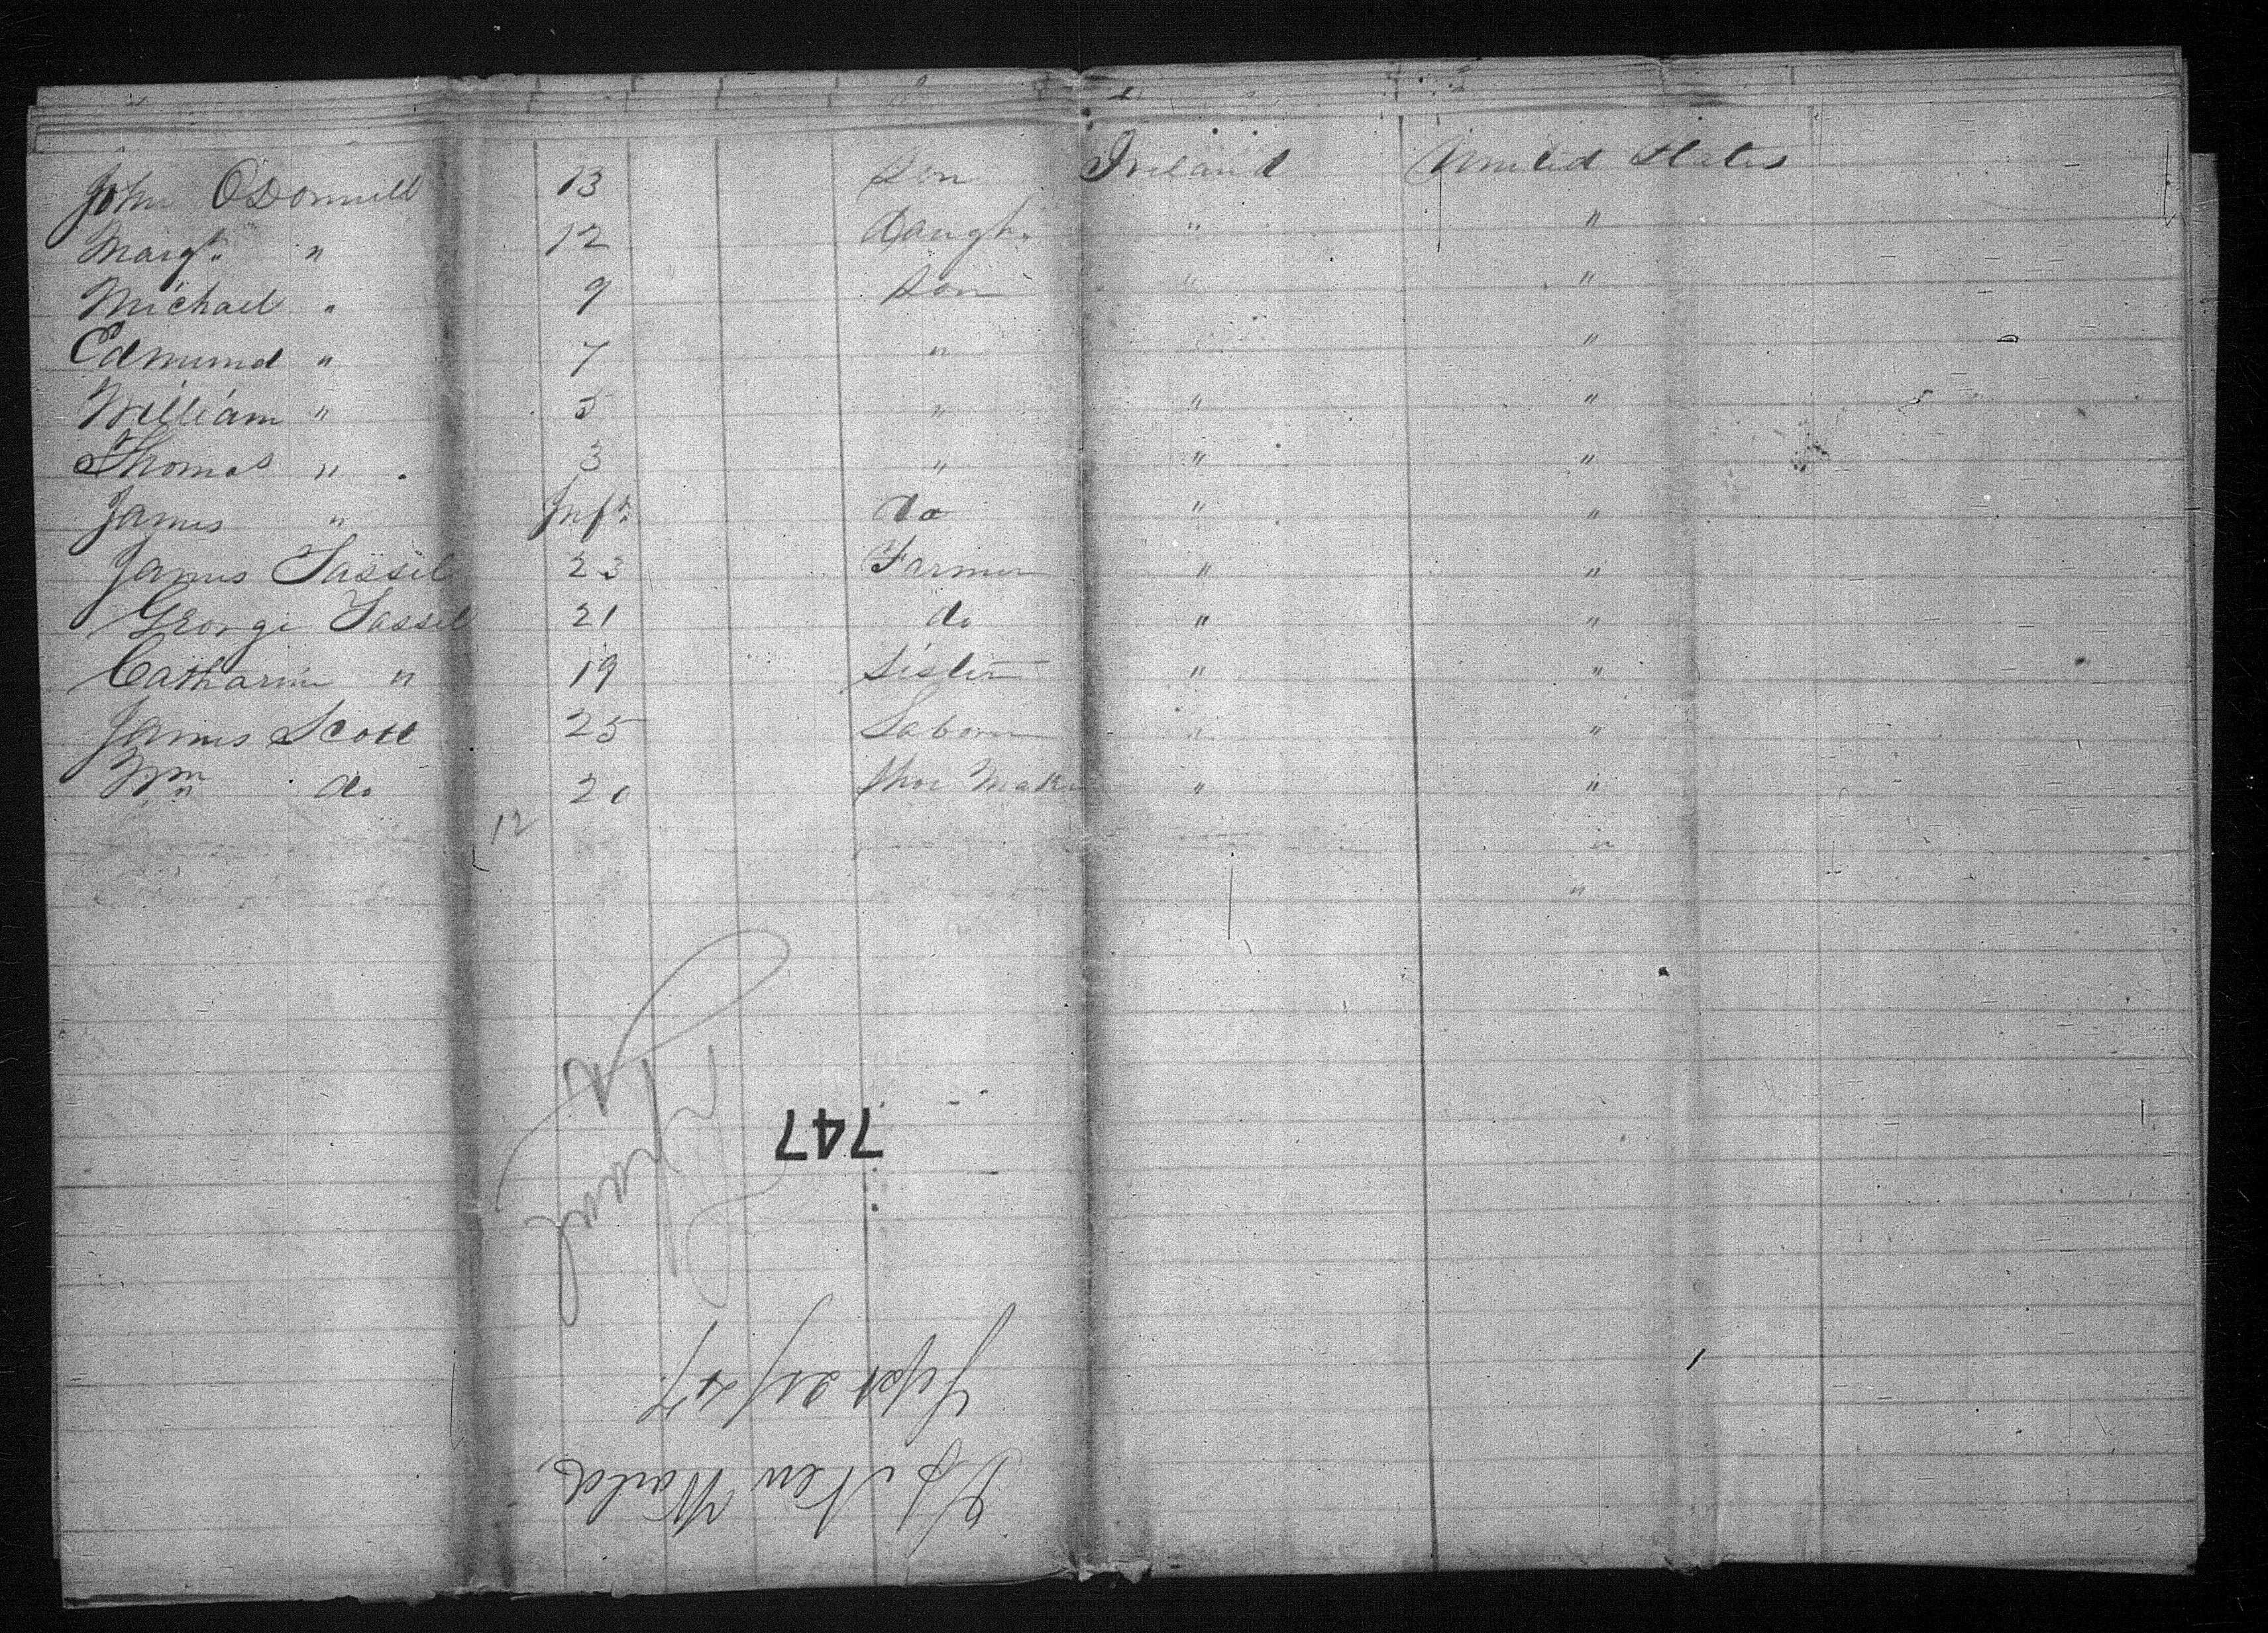 John ODonnell 13 Son Ireland United States
Margt. " 12 Daugh. " "
Michael " 9 Son " "
Edmund " 7 " "
William " 5 " " "
Thomas " 3 " " "
James " Inft. do " "
James 23 Farmer " "
George 21 do " "
Catharine " 19 Sister " "
James Scott 25 Laborer " "
Wm do 20 Shoe Maker " "
12 "
"
747
Sept 21/47
New World